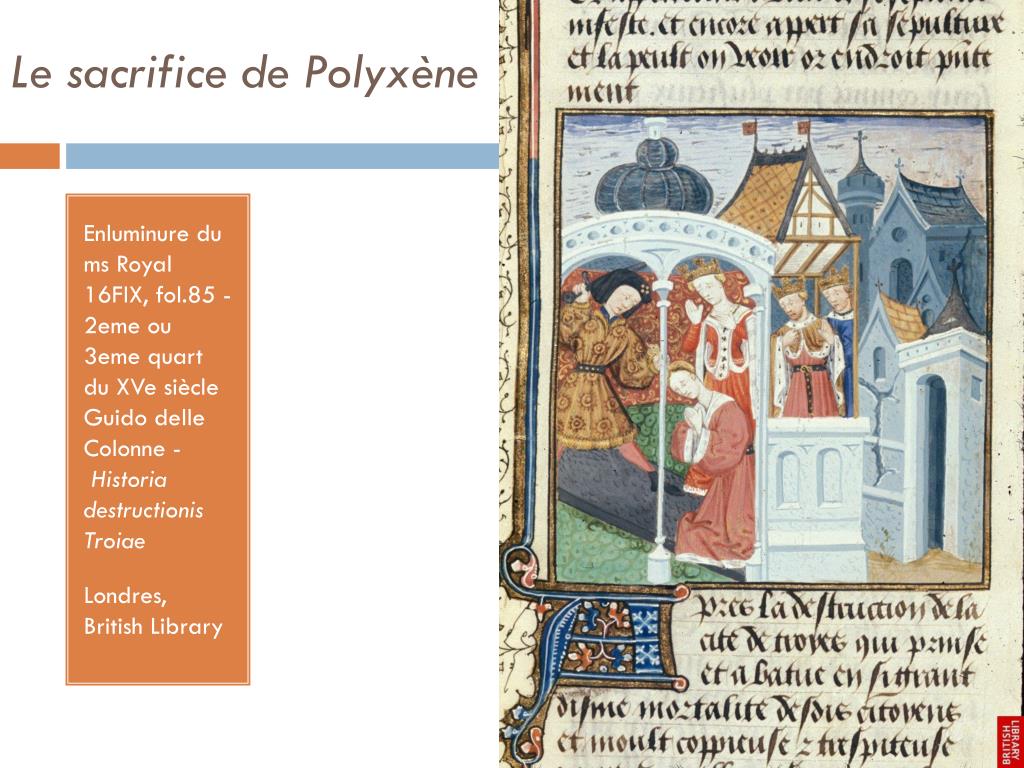 Le sacrifice de Polyxène
Enluminure du
ms Royal
16FIX, fol.85 -
2eme ou
3eme quart
du XVe siècle
Guido delle
Colonne -
Historia
destructionis
Troiae
Londres,
British Library
infeste. et encore appert sa sepulture
et la peult on veoir or endroit
ment
Apres la destruction de la
cite de troyes qui prinse
et abatue en si grant
disme mortalite desdis citoyens
et moult coppieuse
BRITISH
LIBRARY